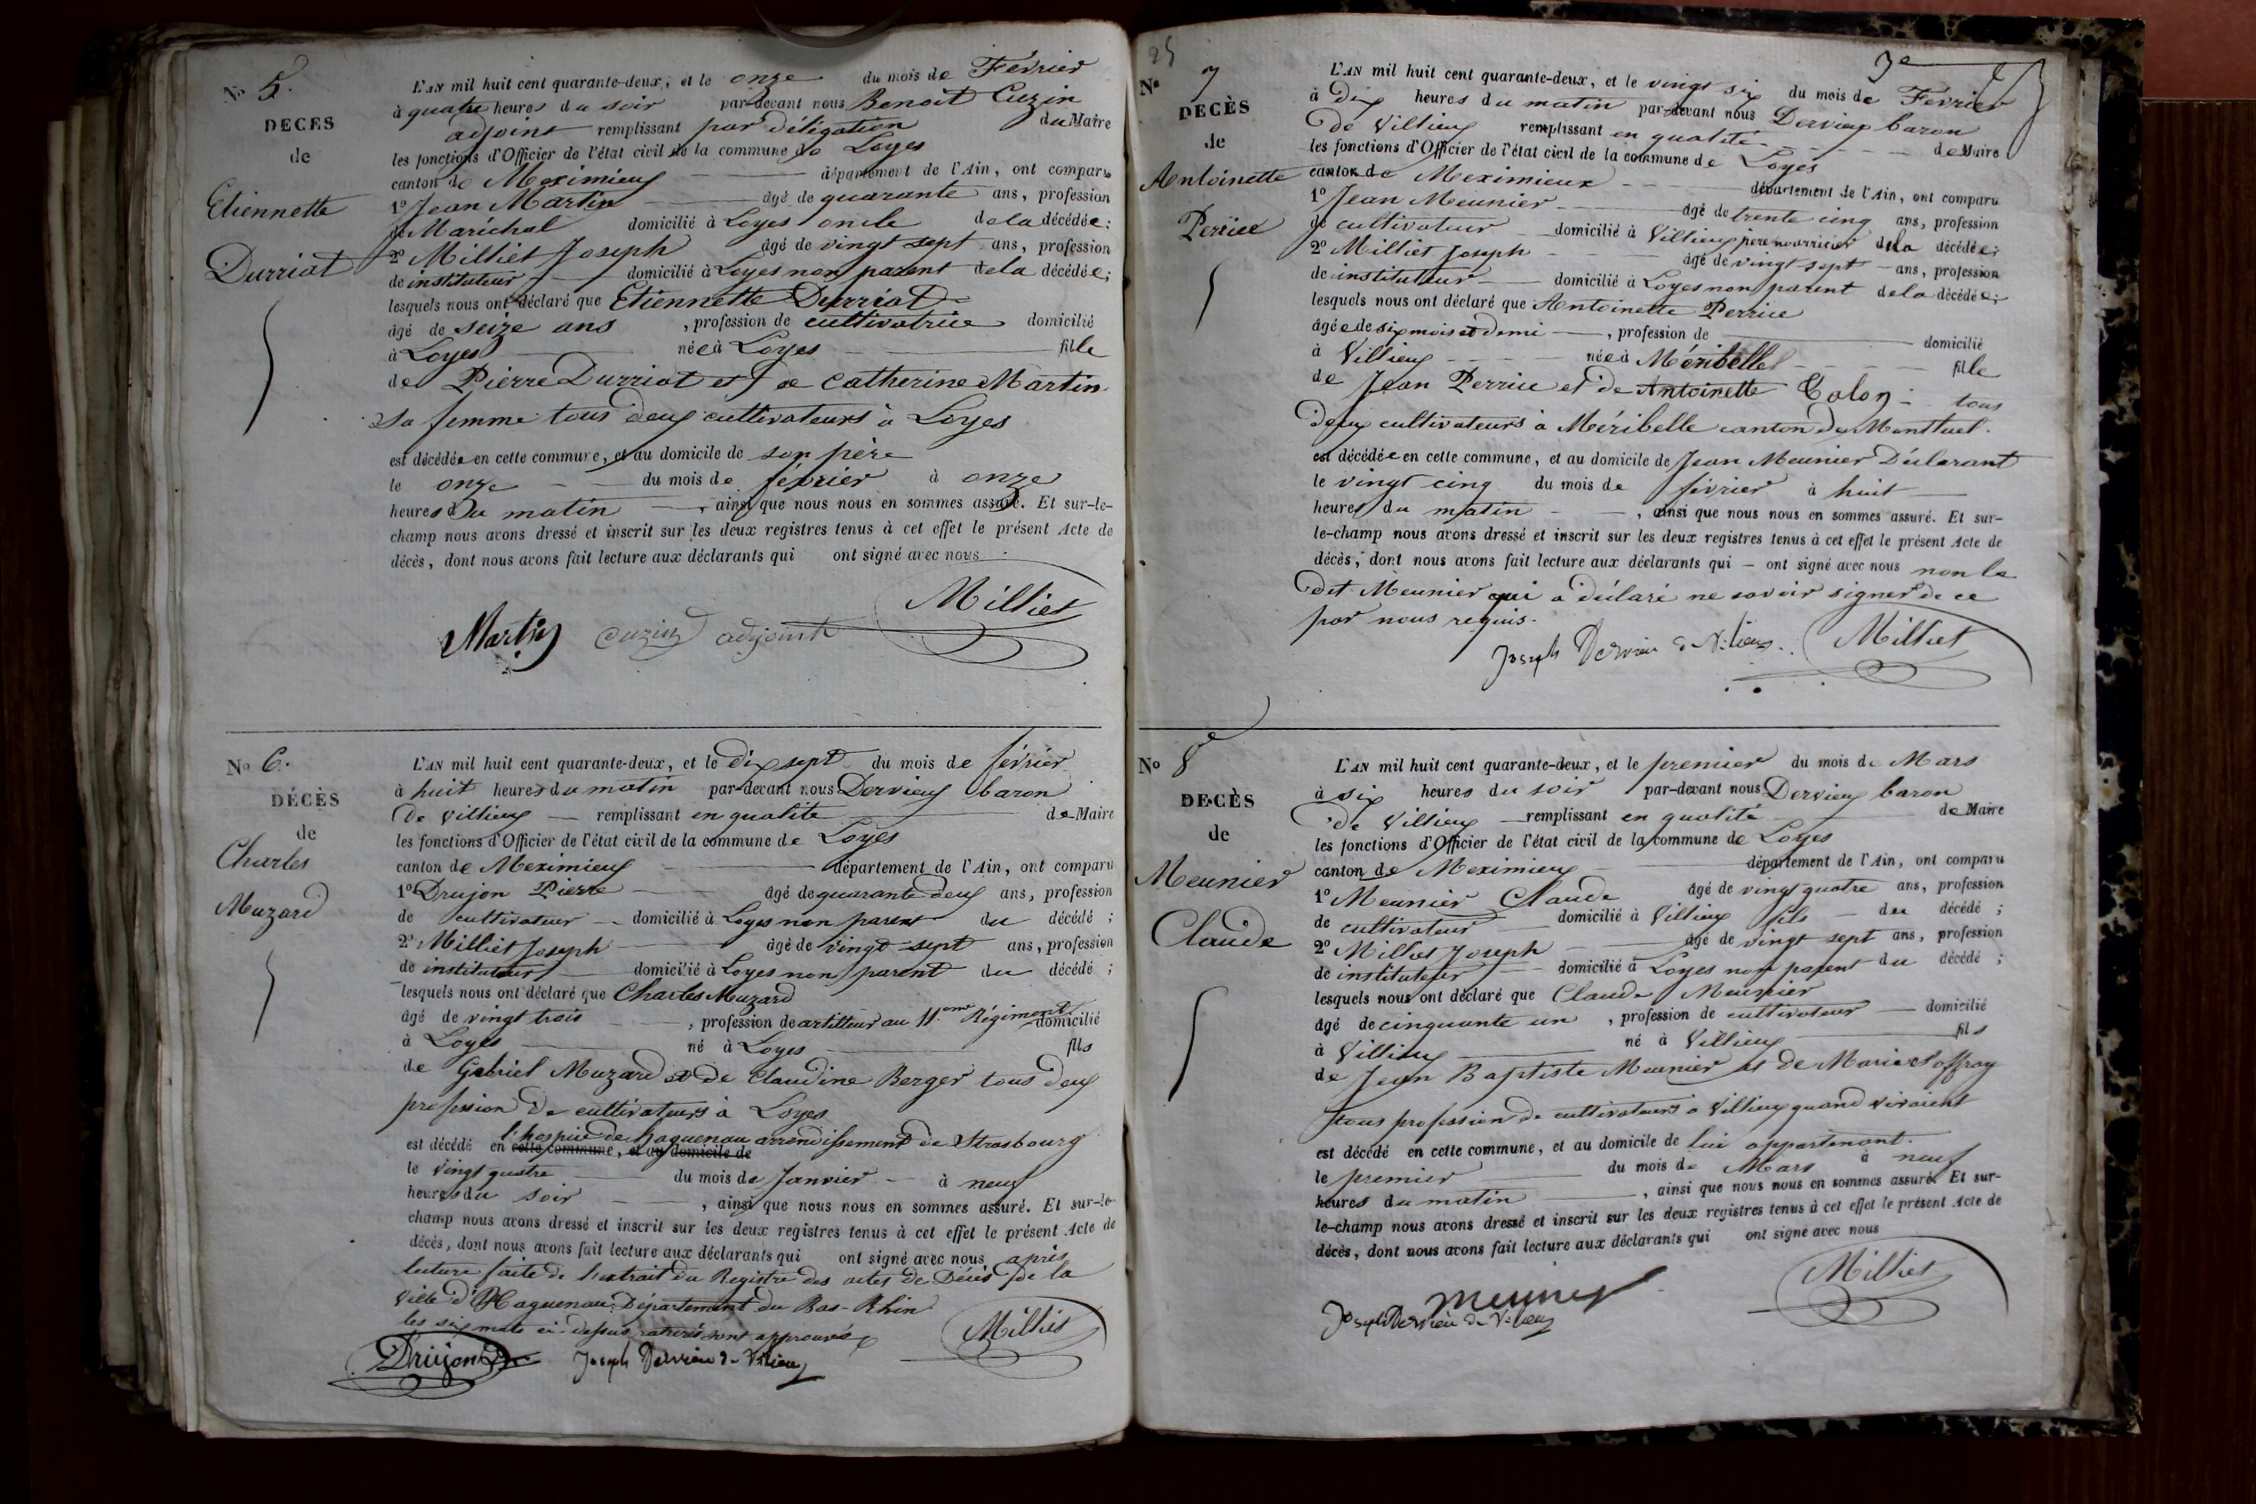 No 5.
DECES
de
Etiennette
Durriat
L'AN mil huit cent quarante-deux, et le onze du mois de Février
à quatre heures du soir par-devant nous Benoît Cuzin
adjoint remplissant par délégation du Maire
les fonctions d'Officier de l'état civil de la commune de Loyes
canton de Meximieux département de l'Ain, ont comparu
1º Jean Martin âgé de quarante ans, profession
de Maréchal domicilié à Loyes oncle de la décédée ;
2º Milliet Joseph âgé de vingt sept ans, profession
de instituteur domicilié à Loyes non parent de la décédée ;
lesquels nous ont déclaré que Etiennette Durriat
âgé de seize ans , profession de cultivatrice domicilié
à Loyes née à Loyes fille
de Pierre Durriat et de Catherine Martin
sa femme tous deux cultivateurs à Loyes
est décédée en cette commune, et au domicile de son père
le onze du mois de février à onze
heures du matin , ainsi que nous nous en sommes assuré. Et sur-le-
champ nous avons dressé et inscrit sur les deux registres tenus à cet effet le présent Acte de
décès, dont nous avons fait lecture aux déclarants qui ont signé avec nous
Milliet
Martin cuzin adjoint
No 6.
DÉCÈS
de
Charles
Muzard
L'AN mil huit cent quarante-deux, et le dix sept du mois de février
à huit heures du matin par-devant nous Dervieux baron
de Villieux remplissant en qualité de Maire
les fonctions d'Officier de l'état civil de la commune de Loyes
canton de Meximieux département de l'Ain, ont comparu
1º Drujon Pierre âgé de quarante deux ans, profession
de cultivateur domicilié à Loyes non parent du décédé ;
2º Milliet Joseph âgé de vingt-sept ans, profession
de instituteur domicilié à Loyes non parent du décédé ;
lesquels nous ont déclaré que Charles Muzard
âgé de vingt trois , profession de artilleur au 11eme Régiment domicilié
à Loyes né à Loyes fils
de Gabriel Muzard et de Claudine Berger tous deux
profession de cultivateurs à Loyes
l'hospice de haguenau arrondissement de Strasbourg
est décédé en cette commune, et au domicile de
le vingt quatre du mois de Janvier à neuf
heures du soir , ainsi que nous nous en sommes assuré. Et sur-le-
champ nous avons dressé et inscrit sur les deux registres tenus à cet effet le présent Acte de
décès, dont nous avons fait lecture aux déclarants qui ont signé avec nous après
lecture faite de l'extrait du Registre des actes de Décès de la
Ville d'Haguenau, Département du Bas-Rhin
les six mots ci-dessus raturés sont approuvés
Milliet
Drujon Joseph Dervieu de Vilieu
25
3e
No 7
DÉCÈS
de
Antoinette
Perrice
L'AN mil huit cent quarante-deux, et le vingt six du mois de Février
à Dix heures du matin par-devant nous Dervieux baron
de Villieux remplissant en qualité de Maire
les fonctions d'Officier de l'état civil de la commune de Loyes
canton de Meximieux département de l'Ain, ont comparu
1º Jean Meunier âgé de trente cinq ans, profession
de cultivateur domicilié à Villieux père nourricier de la décédée ;
2º Milliet Joseph âgé de vingt sept ans, profession
de instituteur domicilié à Loyes non parent de la décédée ;
lesquels nous ont déclaré que Antoinette Perrice
âgée de six mois et demi , profession de domicilié
à Villieux née à Méribelle fille
de Jean Perrice et de Antoinette Colon tous
deux cultivateurs à Méribelle canton de Montluel.
est décédée en cette commune, et au domicile de Jean Meunier Déclarant
le vingt cinq du mois de février à huit
heures du matin , ainsi que nous nous en sommes assuré. Et sur-
le-champ nous avons dressé et inscrit sur les deux registres tenus à cet effet le présent Acte de
décès, dont nous avons fait lecture aux déclarants qui ont signé avec nous non le
dit Meunier qui a déclaré ne savoir signer de ce
par nous requis.
Joseph Dervieu de Vilieu Milliet
No 8e
DÉCÈS
de
Meunier
Claude
L'AN mil huit cent quarante-deux, et le premier du mois de Mars
à six heures du soir par-devant nous Dervieux baron
de Villieux remplissant en qualité de Maire
les fonctions d'Officier de l'état civil de la commune de Loyes
canton de Meximieux département de l'Ain, ont comparu
1º Meunier Claude âgé de vingt quatre ans, profession
de cultivateur domicilié à Villieux fils du décédé ;
2º Milliet Joseph âgé de vingt sept ans, profession
de instituteur domicilié à Loyes non parent du décédé ;
lesquels nous ont déclaré que Claude Meunier
âgé de cinquante un , profession de cultivateur domicilié
à Villieux né à Villieux fils
de Jean Baptiste Meunier et de Marie Soffray
tous profession de cultivateurs à Villieux quand vivaient
est décédé en cette commune, et au domicile de lui appartenant.
le premier du mois de Mars à neuf
heures du matin , ainsi que nous nous en sommes assuré. Et sur-
le-champ nous avons dressé et inscrit sur les deux registres tenus à cet effet le présent Acte de
décès, dont nous avons fait lecture aux déclarants qui ont signé avec nous
Milliet
meunier
Joseph Dervieu de Vilieu